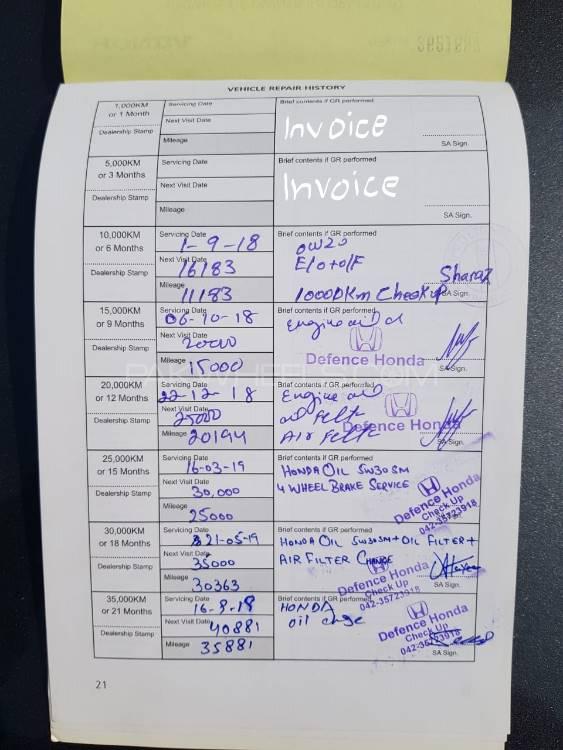 VEHICLE REPAIR HISTORY
1,000KM
or 1 Month
Dealership Stamp
Servicing Date
Next Visit Date
Mileage
Brief contents if GR performed
Invoice
SA Sign.
5,000KM
or 3 Months
Dealership Stamp
Servicing Date
Next Visit Date
Mileage
Brief contents if GR performed
Invoice
SA Sign.
10,000KM
or 6 Months
Dealership Stamp
Servicing Date
1-9-18
Next Visit Date
16183
Mileage
11183
Brief contents if GR performed
0W20
E/o+o/F
10000km Checkup
Sharaz
SA Sign.
15,000KM
or 9 Months
Dealership Stamp
Servicing Date
06-10-18
Next Visit Date
20000
Mileage
15000
Brief contents if GR performed
Engine oil
Defence Honda
SA Sign.
20,000KM
or 12 Months
Dealership Stamp
Servicing Date
22-12-18
Next Visit Date
25000
Mileage
20194
Brief contents if GR performed
Engine oil
oil
Air
Defence Honda
SA Sign.
25,000KM
or 15 Months
Dealership Stamp
Servicing Date
16-03-19
Next Visit Date
30,000
Mileage
25000
Brief contents if GR performed
HONDA OIL 5W30 SM
4 WHEEL BRAKE SERVICE
Defence Honda
Check Up
042-35723918
30,000KM
or 18 Months
Dealership Stamp
Servicing Date
21-05-19
Next Visit Date
35000
Mileage
30363
Brief contents if GR performed
HONDA OIL 5W30SM+OIL FILTER+
AIR FILTER CHANGE
Defence Honda
Check Up
042-35723918
35,000KM
or 21 Months
Dealership Stamp
Servicing Date
16-8-19
Next Visit Date
40881
Mileage
35881
Brief contents if GR performed
HONDA
oil chge
Defence Honda
Check Up
042-35723918
SA Sign.
21